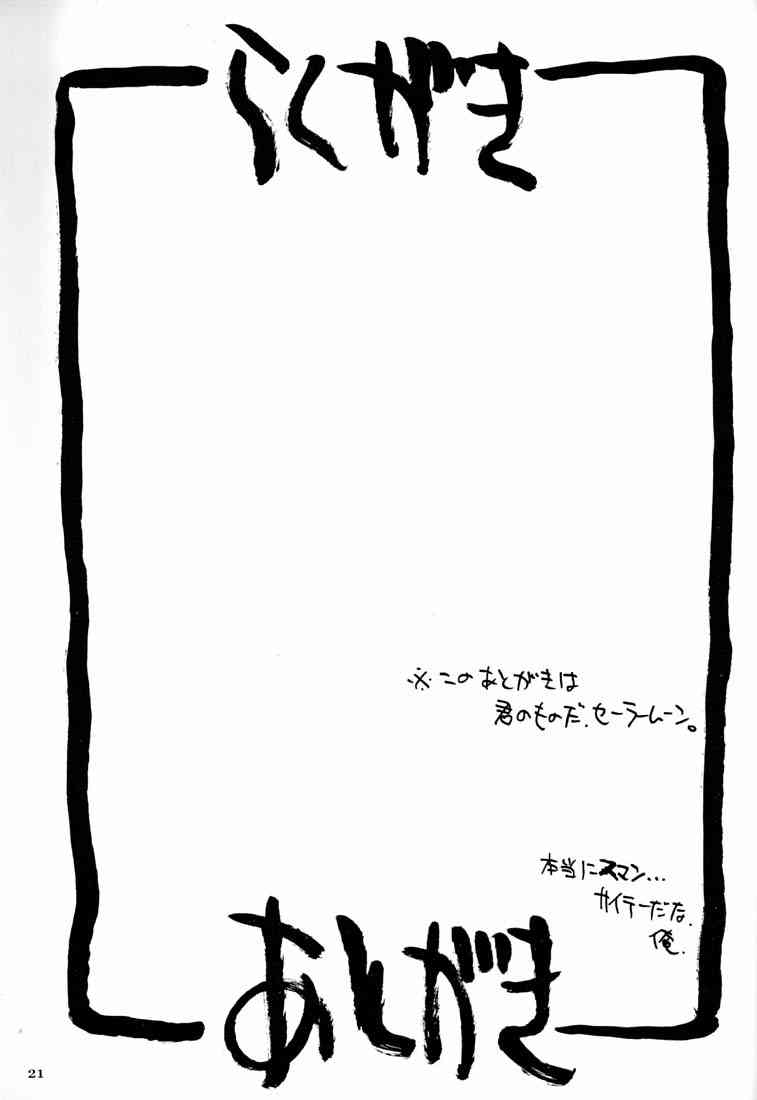 らくがき
※このあとがきは
君のものだ、セーラームーン。
本当にスマン…
サイテーだな、
俺、
あとがき
21